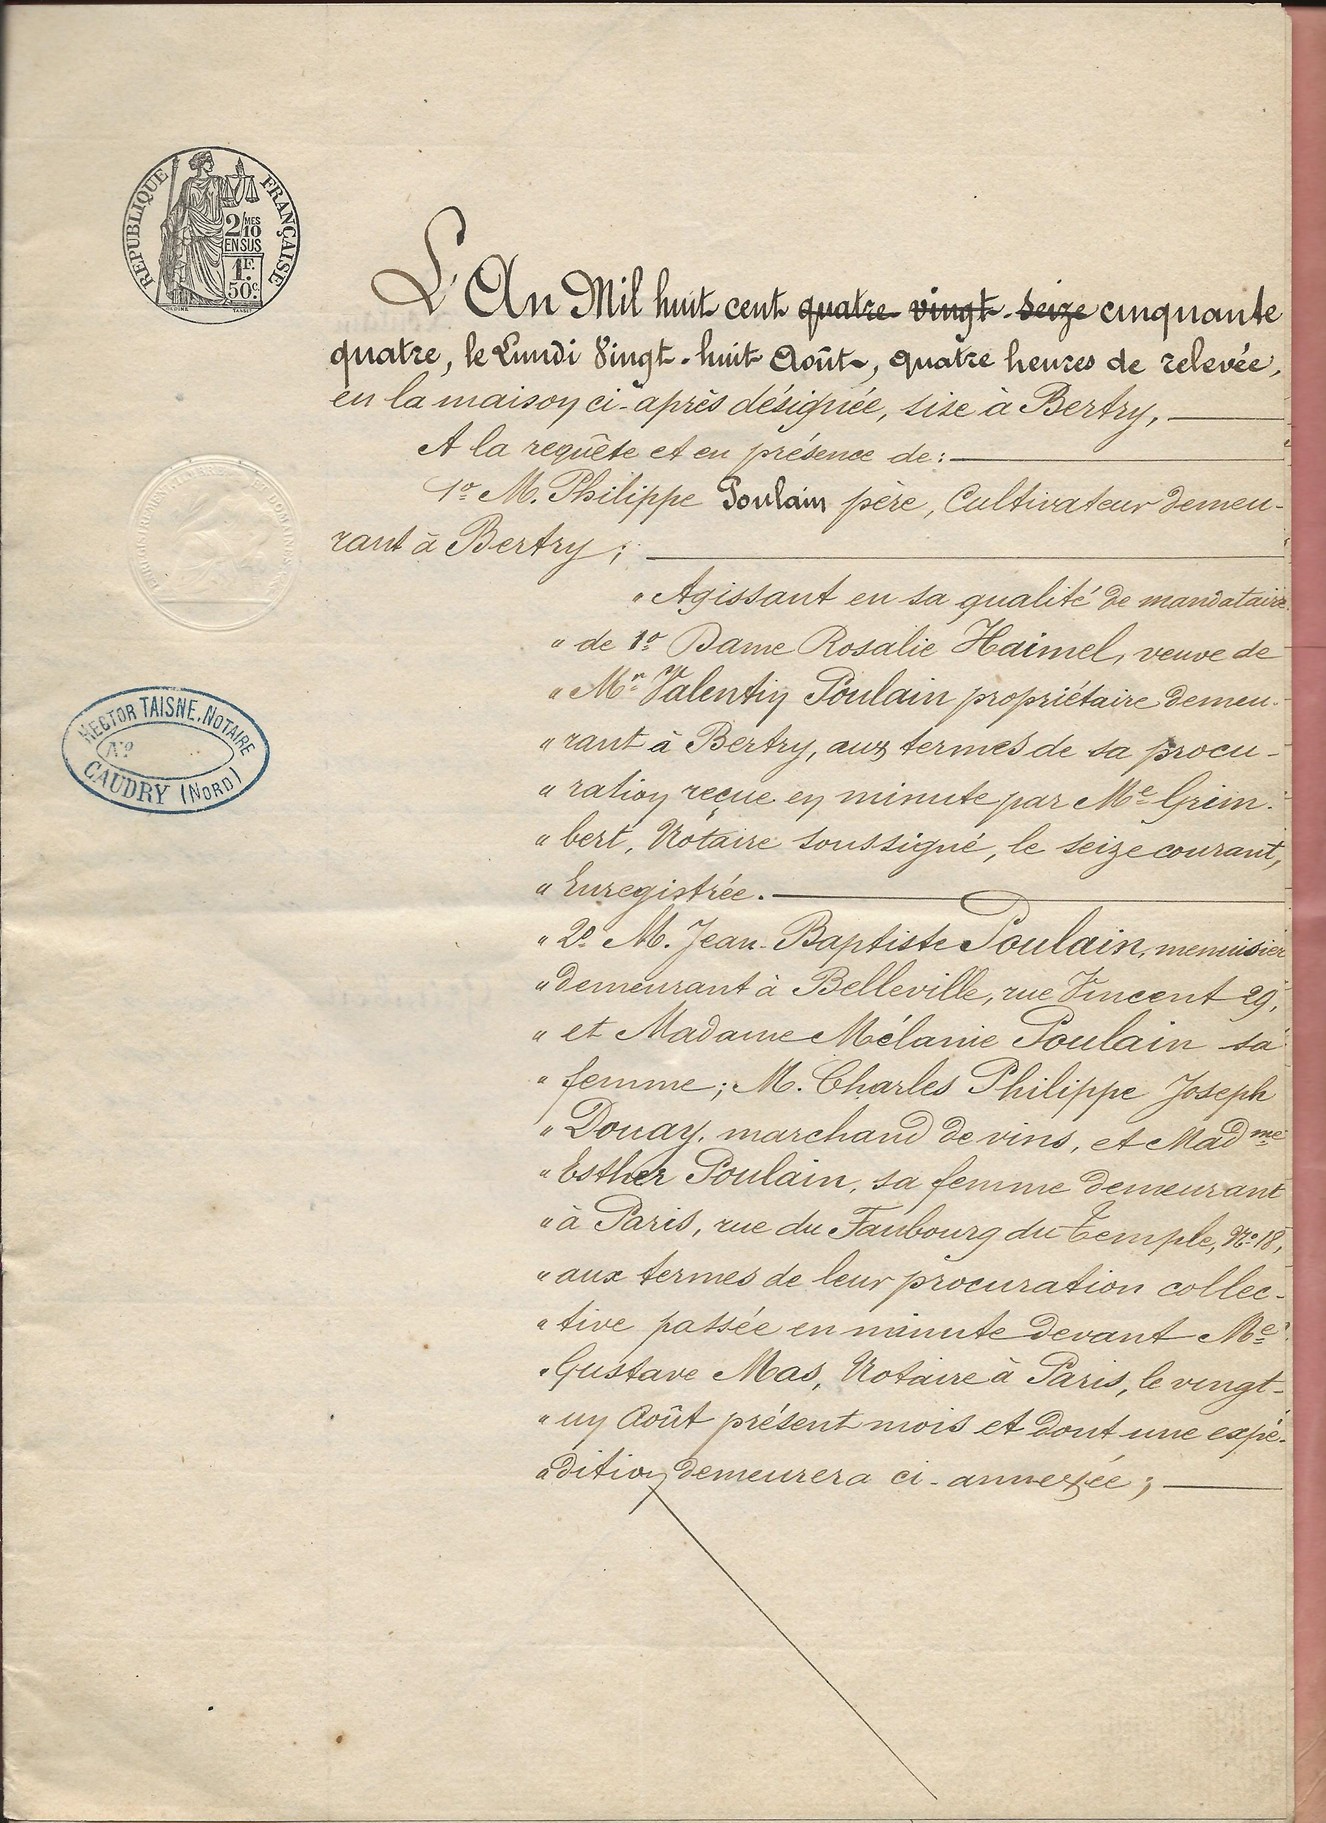 RÉPUBLIQUE FRANÇAISE
2/MES
10
EN SUS
1F.
50c.
L'An Mil huit cent quatre-vingt-seize cinquante
quatre, le Lundi Vingt-huit Août, quatre heures de relevée,
en la maison ci-après désignée, sise à Bertry,
A la requête et en présence de :
1o M. Philippe Poulain père, Cultivateur demeu-
rant à Bertry ;
" Agissant en sa qualité de mandataire
" de 1o Dame Rosalie Haimel, veuve de
" Mr Valentin Poulain propriétaire demeu-
" rant à Bertry, aux termes de sa procu-
" ration reçue en minute par Me Grim-
" bert, Notaire soussigné, le seize courant,
" Enregistrée.
" 2o M. Jean-Baptiste Poulain, menuisier
" demeurant à Belleville, rue Vincent 29,
" et Madame Mélanie Poulain sa
" femme ; M. Charles Philippe Joseph
" Douay, marchand de vins, et Madme
" Esther Poulain, sa femme demeurant
" à Paris, rue du Faubourg du Temple, No 18,
" aux termes de leur procuration collec-
" tive passée en minute devant Me
" Gustave Mas, Notaire à Paris, le vingt-
" un Août présent mois et dont une expé-
" dition demeurera ci-annexée ;
HECTOR TAISNE, NOTAIRE
No
CAUDRY (NORD)